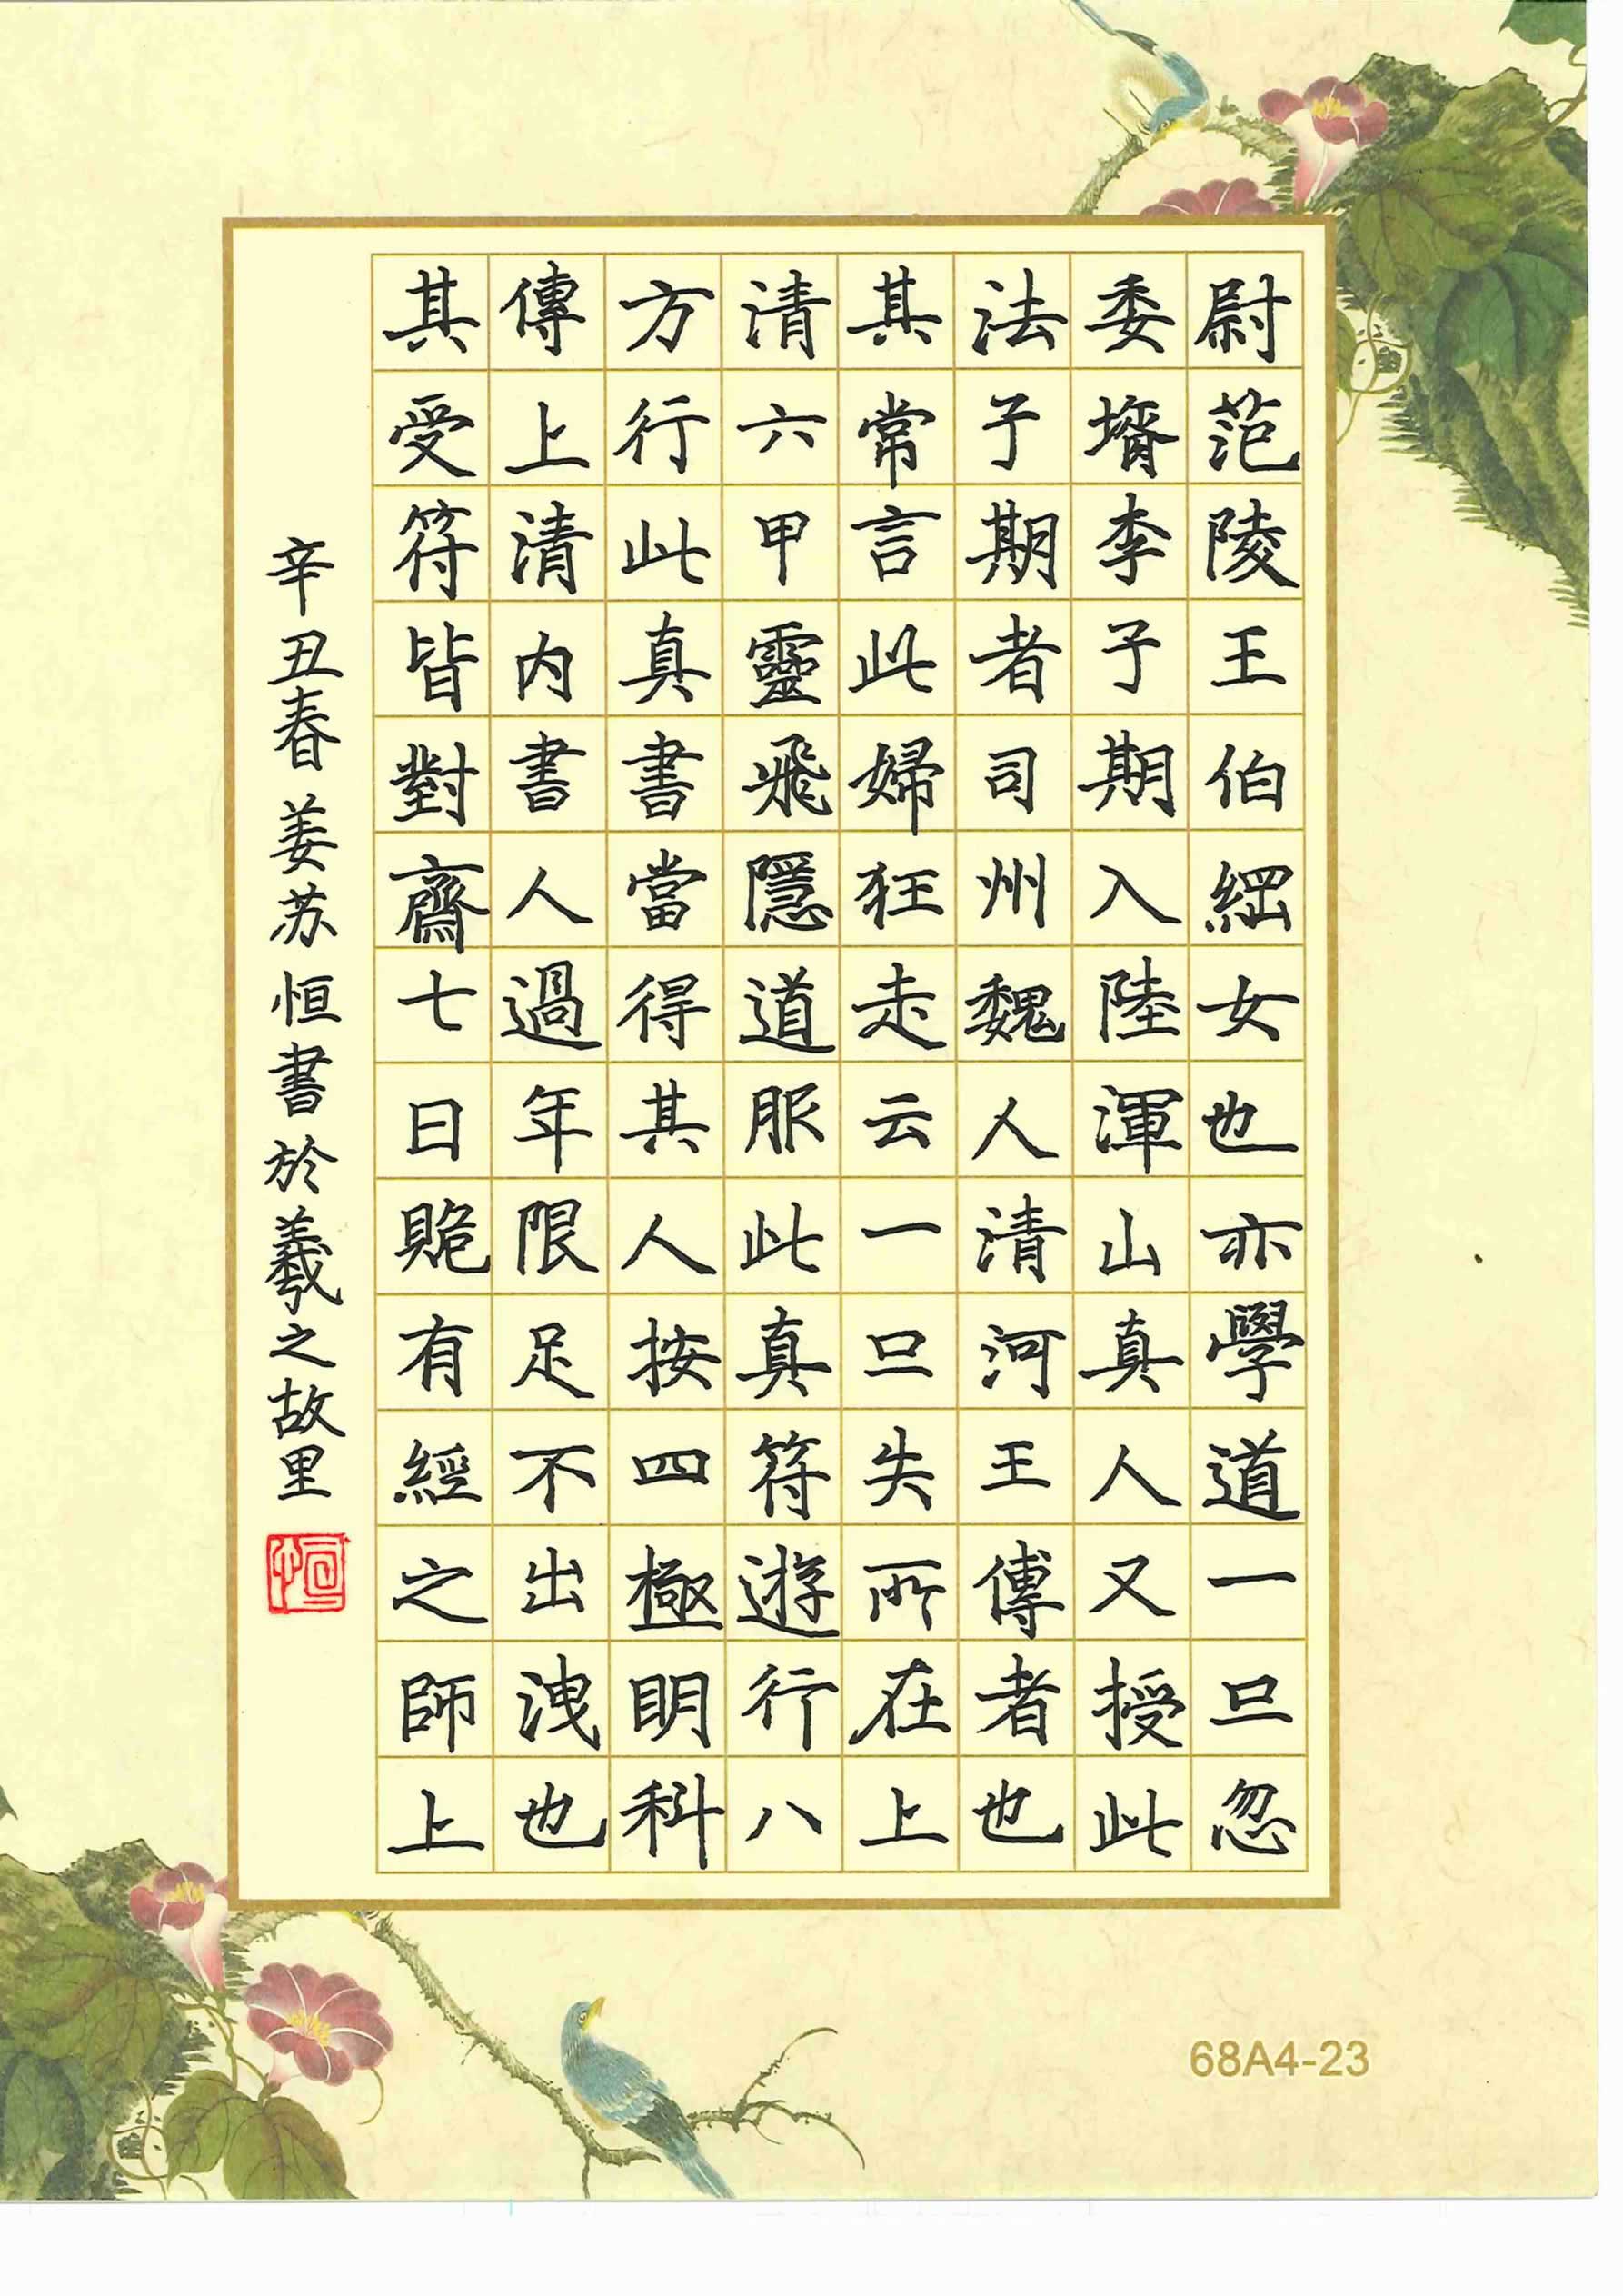 尉范陵王伯綱女也亦學道一旦忽
委壻李子期入陸渾山真人又授此
法子期者司州魏人清河王傅者也
其常言此婦狂走云一旦失所在上
清六甲靈飛隱道服此真符遊行八
方行此真書當得其人按四極明科
傳上清內書人過年限足不出洩也
其受符皆對齋七日賝有經之師上
辛丑春 姜苏恒書於羲之故里
恒
68A4-23